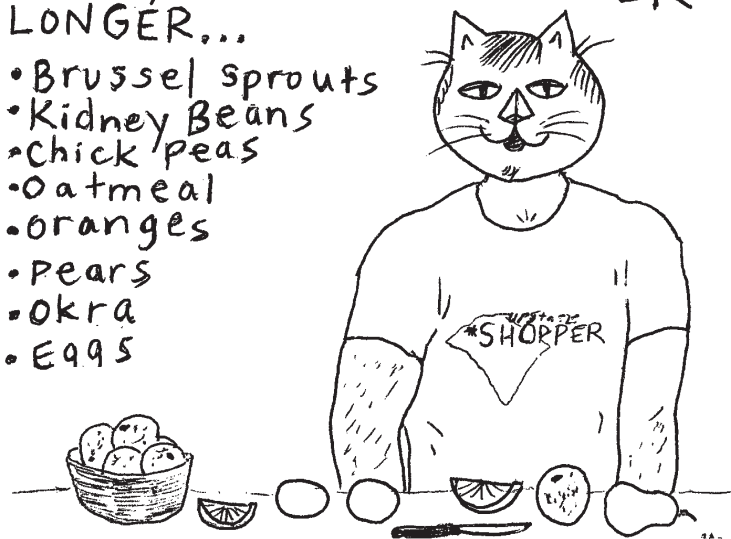 LONGER...
• Brussel sprouts
• Kidney Beans
• Chick peas
• oatmeal
• oranges
• pears
• okra
• Eggs
upstate
*SHOPPER